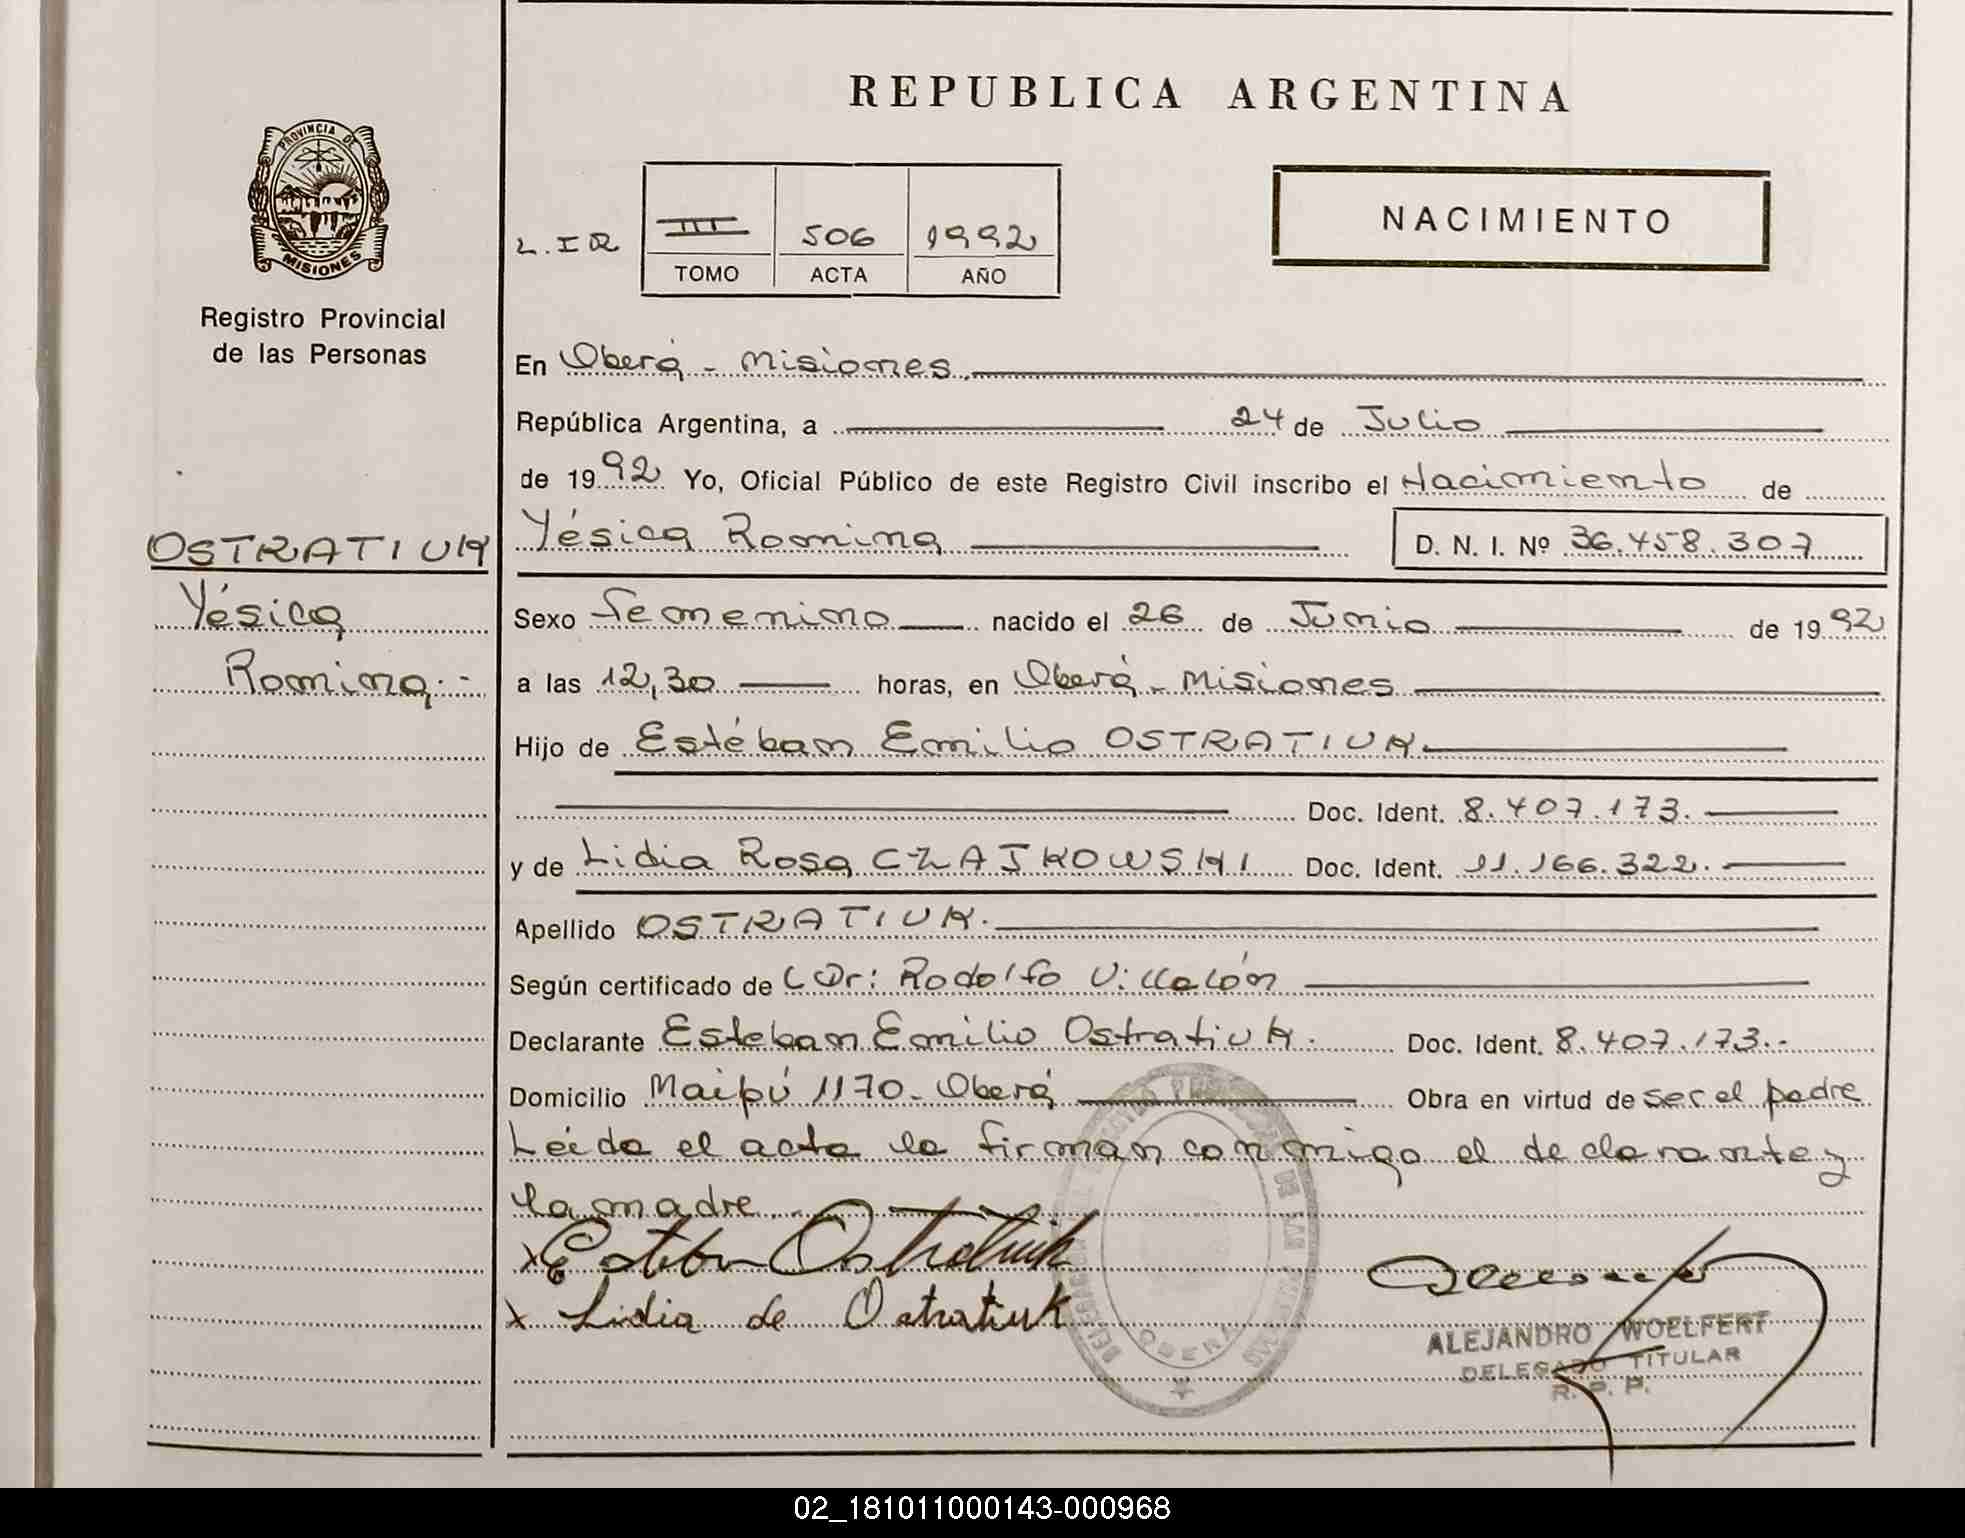 REPUBLICA ARGENTINA
PROVINCIA DE
MISIONES
Registro Provincial
de las Personas
NACIMIENTO
L. I R III 506 1992
TOMO ACTA AÑO
En Oberá - Misiones.
República Argentina, a 24 de Julio
de 1992 Yo, Oficial Público de este Registro Civil inscribo el Nacimiento de
OSTRATIUK
Yésica
Romina.-
Yésica Romina D. N. I. Nº 36.458.307
Sexo femenino nacido el 26 de Junio de 1992
a las 12,30 horas, en Oberá - Misiones
Hijo de Estéban Emilio OSTRATIUK
Doc. Ident. 8.407.173.
y de Lidia Rosa CZAJKOWSKI Doc. Ident. 11.166.322.
Apellido OSTRATIUK.
Según certificado de Dr: Rodolfo Villalón
Declarante Esteban Emilio Ostratiuk. Doc. Ident. 8.407.173.-
Domicilio Maipú 1170 - Oberá Obra en virtud de ser el padre
Leída el acta la firman conmigo el declarante y
la madre.
x Esteban Ostratiuk
x Lidia de Ostratiuk
OBERA
ALEJANDRO WOELFERT
DELEGADO TITULAR
R. P. P.
02_181011000143-000968